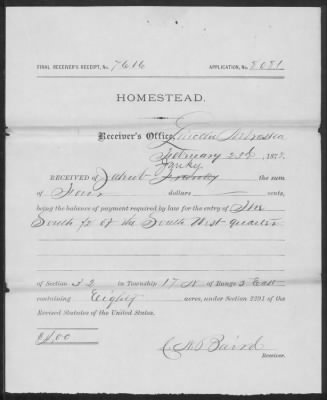 FINAL RECEIVER'S RECEIPT, No. 7616 APPLICATION, No. 8081
HOMESTEAD.
Receiver's Office, Lincoln Nebraska
February 1879.
RECEIVED of the sum
of Four dollars cents,
being the balance of payment required by law for the entry of The
South ½ of the South West quarter
of Section 32 in Township 17 N of Range 5 East
containing Eighty acres, under Section 2291 of the
Revised Statutes of the United States.
$4.00
Baird
Receiver.